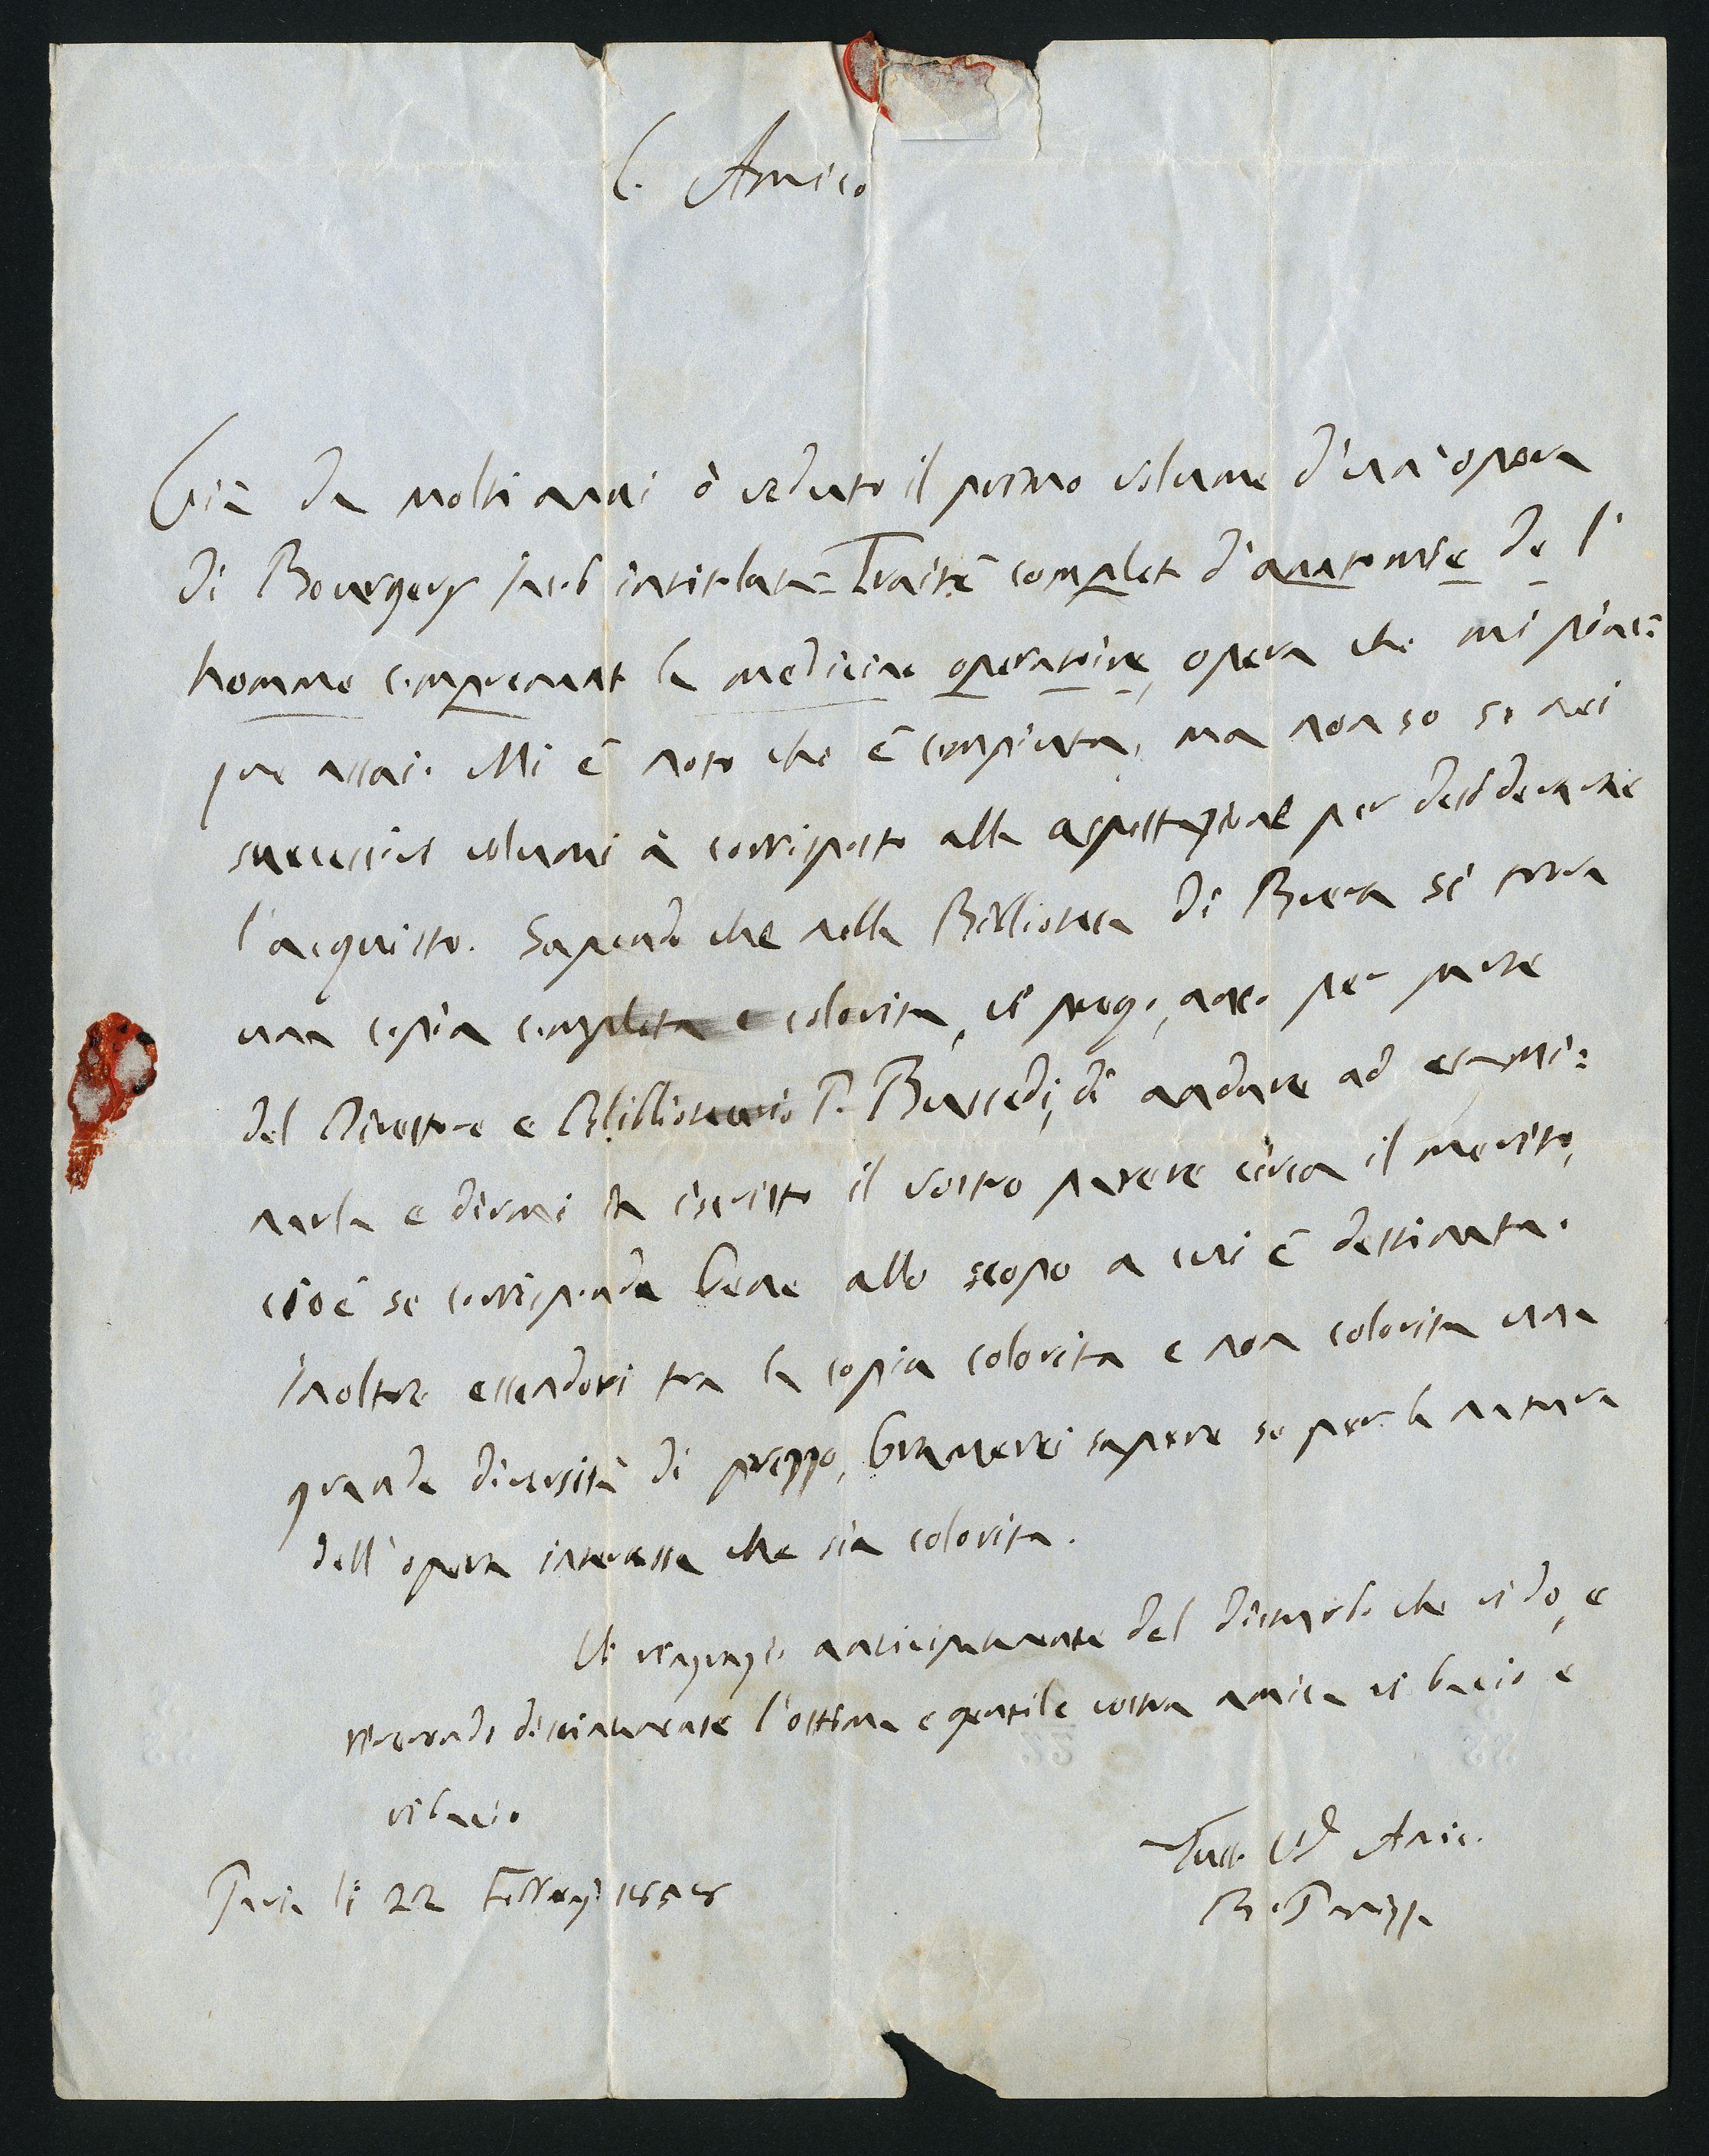 C. Amico
Già da molti anni ò veduto il primo volume d'una opera
di Bourgery Jacob intitolata = Traitè complet d'anatomie de l'
homme comprenant la medicine operatoire, opera che mi piac=
que assai. Mi è noto che è compiuta, ma non so se nei
successivi volumi à corrisposto alla aspettazione per desiderarne
l'acquisto. Sapendo che nella Biblioteca di Brera si trova
una copia completa e colorita, vi prego, anco per parte
del Direttore e Bibliotecario P. , di andare ad esami=
narla e dirmi in iscritto il vostro parere circa il merito,
cioè se corrisponda bene allo scopo a cui è destinata.
Inoltre essendovi tra la copia colorita e non colorita una
grande diversità di prezzo, bramerei sapere se per la natura
dell'opera interessa che sia colorita.
Vi ringrazio anticipatamente del disturbo che vi do, e
riverendo distintamente l'ottima e gentile vostra amica vi bacio e
vi bacio
Pavia li 22 Febbraj
Tutto Vo Amic.
B. Panizza